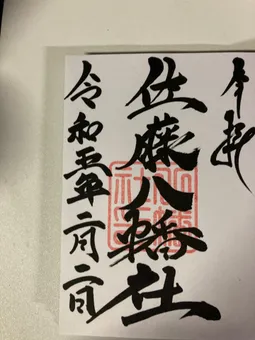 奉拝
佐藤八幡社
令和五年二月二日